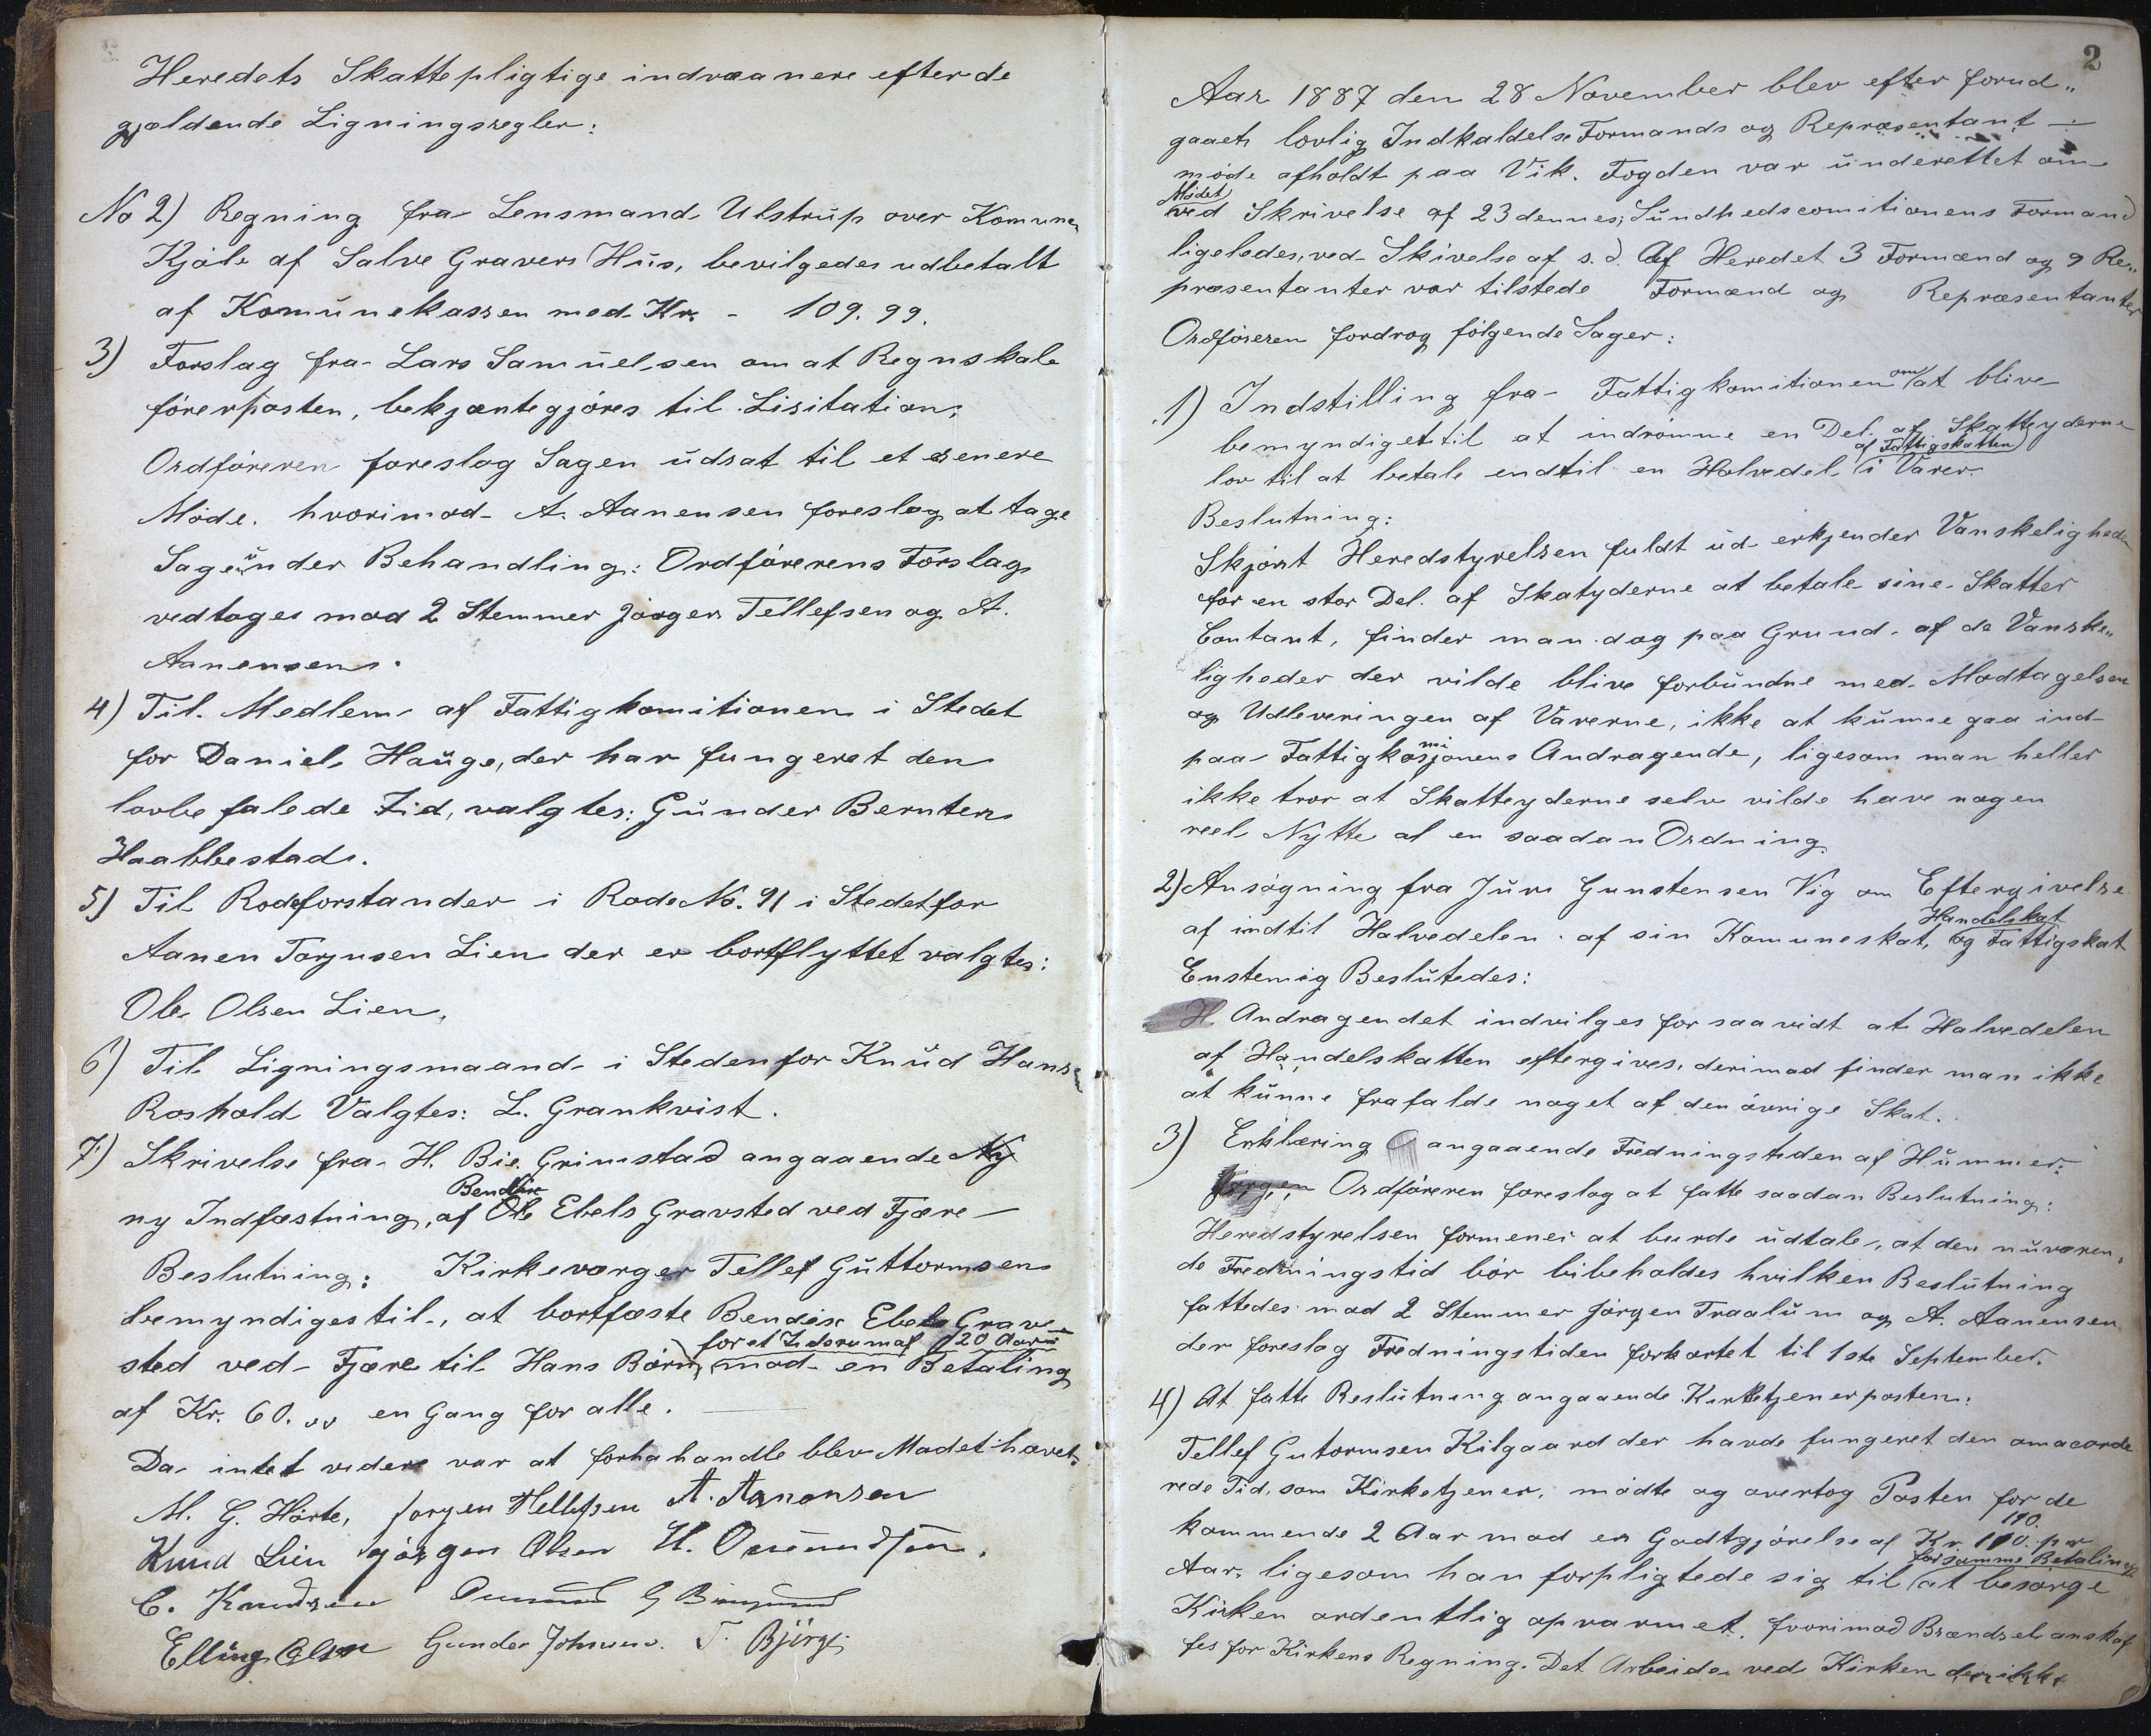 Heredets Skattepligtige indvaanere efter de
gjældende Ligningsregler:
No 2) Regning fra Lensmand Ulstrup over Komunen
Kjøb af Salve Gravers Hus, bevilgedes udbetalt
af Komunekassen med Kr. - 109.99.
3) Forslag fra Lars Samuelsen om at Regnskabs
førerposten, bekjentegjøres til Lisitation;
Ordføreren foreslog Sagen udsat til et senere
Møde. hvorimod A. Aanensen foreslog at tage
Sagen under Behandling: Ordførerens Forslag
vedtoges mod 2 Stemmer Jørgen Tellefsen og A.
Aanensen.
4) Til Medlem af Fattigkomitionen i Stedet
for Daniel Hauge, der har fungeret den
lovbefalede Tid, valgtes: Gunder Berntsen
Haabbestad.
5) Til Rodeforstander i Rode No. 91 i Stedet for
Aanen Torjusen Lien der er bortflyttet valgtes:
Ole Olsen Lien.
6) Til Ligningsmaand i Steden for Knud Hansen
Roshold Valgtes: L. Grankvist.
7) Skrivelse fra H. Bie Grimstad angaaende Ny
Bendix
ny Indfæstning, af Ole Ebels Gravsted ved Fjære
Beslutning: Kirkeværger Tellef Guttormsen
bemyndiges til, at bortfæste Bendix Ebels Grav
for et Tidsrum af 20 Aar
sted ved Fjære til Hans Børn, mod en Betaling
af Kr. 60.00 en Gang for alle.
Da intet videre var at forhahandle blev Mødet hævet.
M. G. Hörte, Jørgen Tellefsen A. Aanensen
Knud Lien Jörgen Olsen H. Omundsen.
C. Knudsen Omund G
Elling Olsen Gunder Johnsen. T. Björge
2
Aar 1887 den 28 November blev efter forud„
gaaet lovlig Indkaldelse Formands og Repræsentant
møde afholdt paa Vik. Fogden var underettet om
Mødet
ved Skrivelse af 23 dennes; Sundhedscomitionens Formand
ligeledes, ved Skivelse af s. d. Af Heredet 3 Formænd og 9 Re„
præsentanter var tilstede Formænd og Repræsentanter
Ordføreren fordrog følgende Sager:
1) Indstilling fra Fattigkomitionen om at blive
bemyndiget til at indrømme en Del af Skatteyderne
af Fattigskatten
lov til at betale endtil en Halvedel i Varer
Beslutning:
Skjønt Heredstyrelsen fuldt ud erkjender Vanskeligheden
for en stor Del af Skatyderne at betale sine Skatter
Contant, finder man dog paa Grund af de Vanske„
ligheder der vilde blive forbundne med Modtagelsen
og Udleveringen af Varerne, ikke at kunne gaa ind
mi
paa Fattigkosjonens Andragende, ligesom man heller
ikke tror at Skatteyderne selv vilde have nogen
reel Nytte af en saadan Ordning.
2) Ansøgning fra Jens Gunstensen Vig om Eftergivelse
Handelskat
af indtil Halvedelen af sin Komuneskat, og Fattigskat
Enstemig Beslutedes:
H. Andragendet indvilges for saa vidt at Halvedelen
af Handelskatten eftergives, derimod finder man ikke
at kunne frafalde noget af den øvrige Skat.
3) Erklæring angaaende Fredningstiden af Hummer:
Jørgen Ordføreren foreslog at fatte saadan Beslutning:
Heredstyrelsen formener at burde udtale, at den nuværen„
de Fredningstid bør bibeholdes hvilken Beslutning
fattedes mod 2 Stemmer Jørgen Traalum og A. Aanensen
der foreslog Fredningstiden forkortet til 1ste September.
4) At fatte Beslutning angaaende Kirketjenerposten:
Tellef Gutormsen Kilgaard der havde fungeret den omacorde
rede Tid, som Kirketjener, mødte og overtog Posten for de
110.
kommende 2 Aar mod en Godtgjørelse af Kr. 110. pr
for samme Betaling
Aar, ligesom han forpligtede sig til at besørge
Kirken ordentlig opvarmet, hvorimod Brændsel anskaf
fes for Kirkens Regning. Det Arbeide ved Kirken der ikke